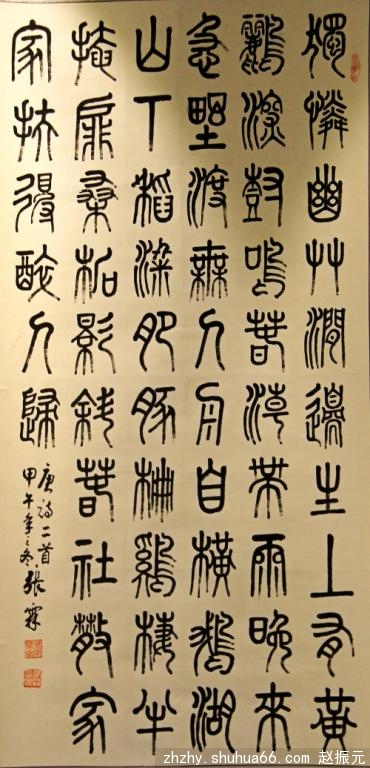 獨憐幽艸澗邊生上有黃
鸝深樹鳴春潮帶雨晚來
急野渡無人舟自橫鵝湖
山下稻粱肥豚柵雞棲半
掩扉桑柘影斜春社散家
家扶得醉人歸
唐詩二首
甲午年之冬張霖
zhzhy.shuhua66.com 赵振元